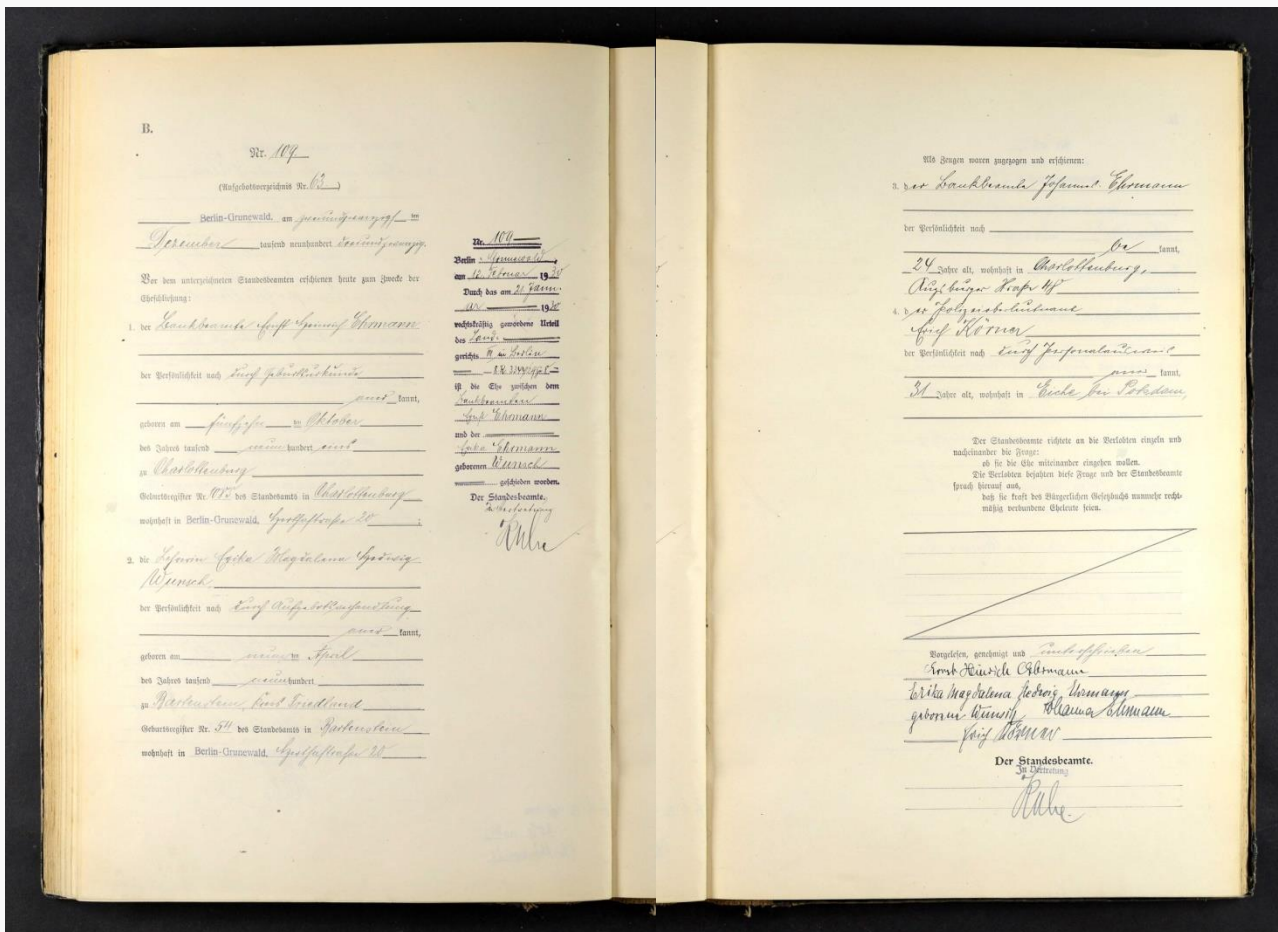 B.
Nr. 109
(Aufgebotsverzeichnis Nr. 63)
Berlin-Grunewald, am zweiundzwanzigsten
Dezember tausend neunhundert dreiundzwanzig.
Vor dem unterzeichneten Standesbeamten erschienen heute zum Zwecke der
Eheschließung:
1. der Bankbeamte Ernst Heinrich Ehrmann
der Persönlichkeit nach durch Geburtsurkunde
aner kannt,
geboren am fünfzehn ten Oktober
des Jahres tausend neun hundert eins
zu Charlottenburg
Geburtsregister Nr. des Standesamts in Charlottenburg
wohnhaft in Berlin-Grunewald, Herthastraße 20 ;
2. die Erika Magdalena Hedwig
Wunsch
der Persönlichkeit nach durch Aufgebotsverhandlung
aner kannt,
geboren am neun ten April
des Jahres tausend neunhundert
zu Bartenstein, Friedland
Geburtsregister Nr. 54 des Standesamts in Bartenstein
wohnhaft in Berlin-Grunewald, Herthastraße 20
Nr. 109
Berlin - Grunewald,
am 12. Februar 1930
Durch das am 20. Janu-
ar 1930
rechtskräftig gewordene Urteil
des Land-
gerichts III in Berlin
ist die Ehe zwischen dem
Bankbeamten
Ernst Ehrmann
und der
Erika Ehrmann
geborenen Wunsch
geschieden worden.
Der Standesbeamte.
In Vertretung
Ruhe
Als Zeugen waren zugezogen und erschienen:
3. der Bankbeamte Johannes Ehrmann
der Persönlichkeit nach
be kannt,
24 Jahre alt, wohnhaft in Charlottenburg,
Augsburger Straße 48
4. der Polizeioberleutnant
Erich Körner
der Persönlichkeit nach durch Personalausweis
aner kannt,
31 Jahre alt, wohnhaft in Eiche bei Potsdam
Der Standesbeamte richtete an die Verlobten einzeln und
nacheinander die Frage:
ob sie die Ehe miteinander eingehen wollen.
Die Verlobten bejahten diese Frage und der Standesbeamte
sprach hierauf aus,
daß sie kraft des Bürgerlichen Gesetzbuchs nunmehr recht-
mäßig verbundene Eheleute seien.
Vorgelesen, genehmigt und unterschrieben
Ernst Heinrich Ehrmann
Erika Magdalena Hedwig Ehrmann
geborene Wunsch Johannes Ehrmann
Erich Körner
Der Standesbeamte.
In Vertretung
Ruhe.